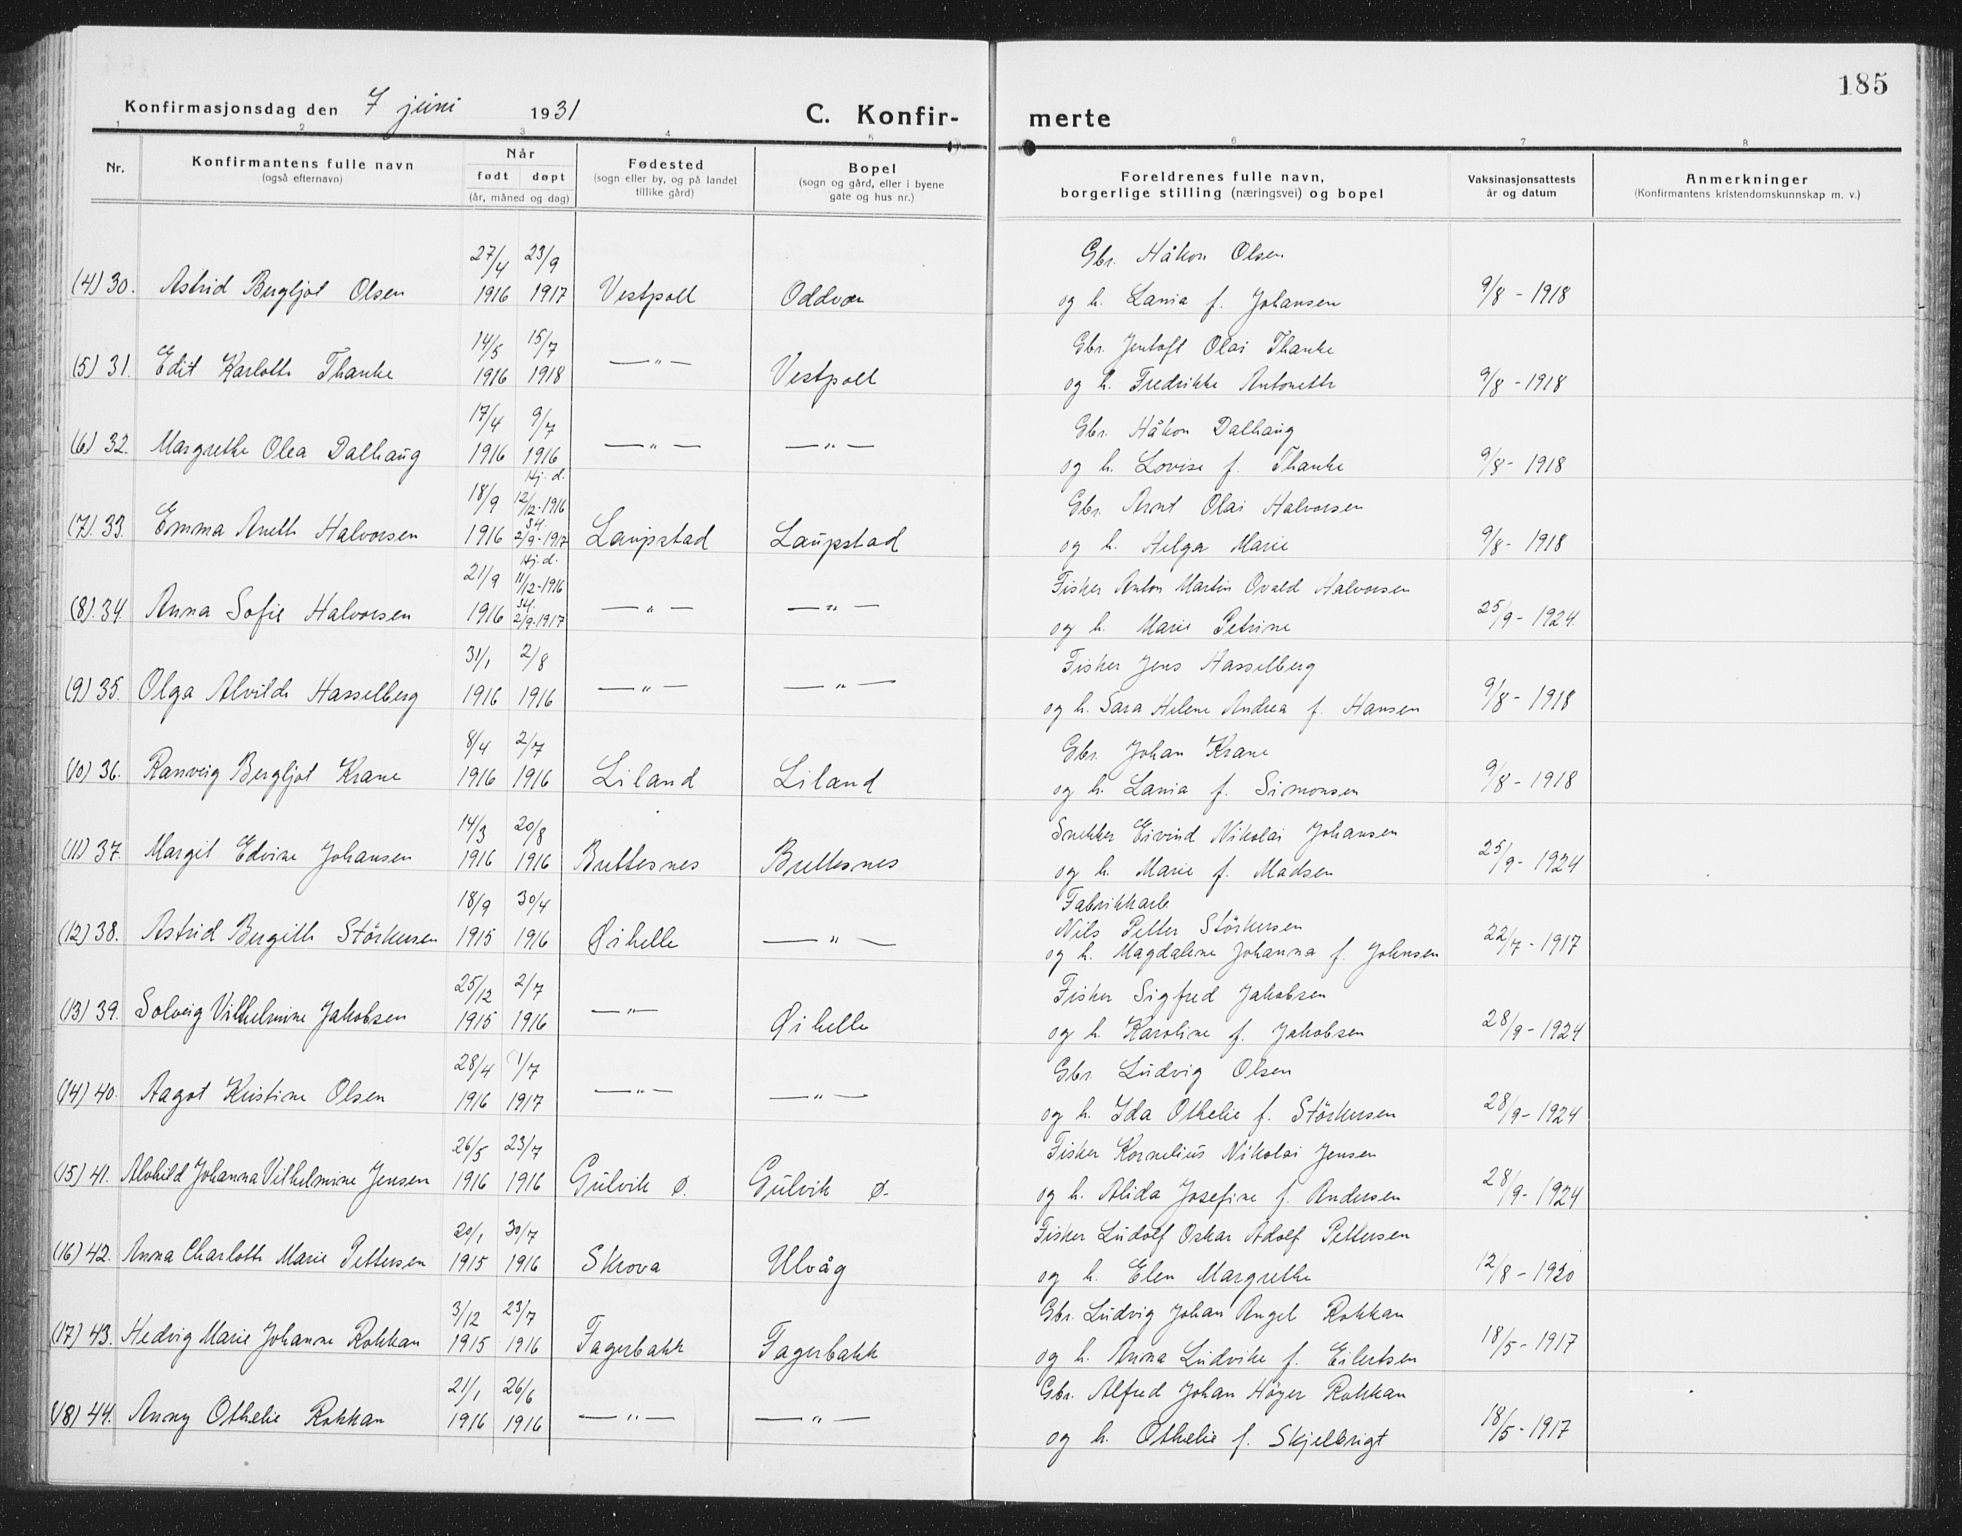 185
Konfirmasjonsdag den 7 juni 1931 C. Konfir- merte
1 2 3 4 5 6 7 8
Nr. Konfirmantens fulle navn (også efternavn) Når født døpt (år, måned og dag) Fødested (sogn eller by, og på landet tillike gård) Bopel (sogn og gård, eller i byene gate og hus nr.) Foreldrenes fulle navn, borgerlige stilling (næringsvei) og bopel Vaksinasjonsattests år og datum Anmerkninger (Konfirmantens kristendomskunnskap m. v.)
27/4 23/9 Gbr. Håkon Olsen
(4) 30. Astrid Bergljot Olsen 1916 1917 Vestpoll Oddvær og h. Lania f. Johansen 9/8 - 1918
14/5 15/7 Gbr. Jentoft Olai Thanke
(5) 31. Edit Karlotte Thanke 1916 1918 — „ — Vestpoll og h. Fredrikke Antonette 9/8 - 1918
17/4 9/7 Gbr. Håkon Dalhaug
(6) 32. Margrethe Olea Dalhaug 1916 1916 — „ — — „ — og h. Lovise f. Thanke 9/8 - 1918
18/9 Hj. d. 12/12-1916 Gbr. Arnt Olai Halvorsen
(7). 33. Emma Anette Halvorsen 1916 st. 2/9-1917 Laupstad Laupstad og h. Helga Marie 9/8 - 1918
21/9 Hj. d. 11/12-1916 Fisker Anton Martin Osvald Halvorsen
(8). 34. Anna Sofie Halvorsen 1916 st. 2/9-1917 — „ — — „ — og h. Marie Petrine 25/9 - 1924
31/1 2/8 Fisker Jens Hasselberg
(9) 35. Olga Alvilde Hasselberg 1916 1916 — „ — — „ — og h. Sara Helene Andrea f. Hansen 9/8 - 1918
8/4 2/7 Gbr. Johan Krane
(10) 36. Ranveig Bergljot Krane 1916 1916 Liland Liland og h. Lania f. Simonsen 9/8 - 1918
14/3 20/8 Snekker Eivind Nikolai Johansen
(11) 37. Margit Edvine Johansen 1916 1916 Brettesnes Brettesnes og h. Marie f. Madsen 25/9 - 1924
18/9 30/4 Fabrikkarb
Nils Petter Störkersen
(12) 38. Astrid Bergitte Störkersen 1915 1916 Øihelle — „ — og h. Magdalene Johanna f. Johnsen 22/7 - 1917
25/12 2/7 Fisker Sigfred Jakobsen
(13) 39. Solveig Vilhelmine Jakobsen 1915 1916 — „ — Øihelle og h. Karoline f. Jakobsen 28/9 - 1924
28/4 1/7 Gbr. Ludvig Olsen
(14) 40. Aagot Kristine Olsen 1916 1917 — „ — — „ — og h. Ida Othelie f. Störkersen 28/9 - 1924
26/5 23/7 Fisker Kornelius Nikolai Jensen
(15) 41. Alvhild Johanna Vilhelmine Jensen 1916 1916 Gulvik Ø. Gulvik Ø. og h. Alida Josefine f. Andersen 28/9 - 1924
20/1 30/7 Fisker Ludolf Oskar Adolf Pettersen
(16) 42. Anna Charlotte Marie Pettersen 1915 1916 Skrova Ulvåg og h. Elen Margrethe 12/8 - 1920
3/12 23/7 Gbr. Ludvig Johan Angel Rokkan
(17) 43. Hedvig Marie Johanne Rokkan 1915 1916 Fagerbakk Fagerbakk og h. Anna Ludvike f. Eilertsen 18/5 - 1917
21/1 26/6 Gbr. Alfred Johan Höyer Rokkan
(18) 44. Anny Othelie Rokkan 1916 1916 — „ — — „ — og h. Othelie f. Skjelbrigt 18/5 - 1917